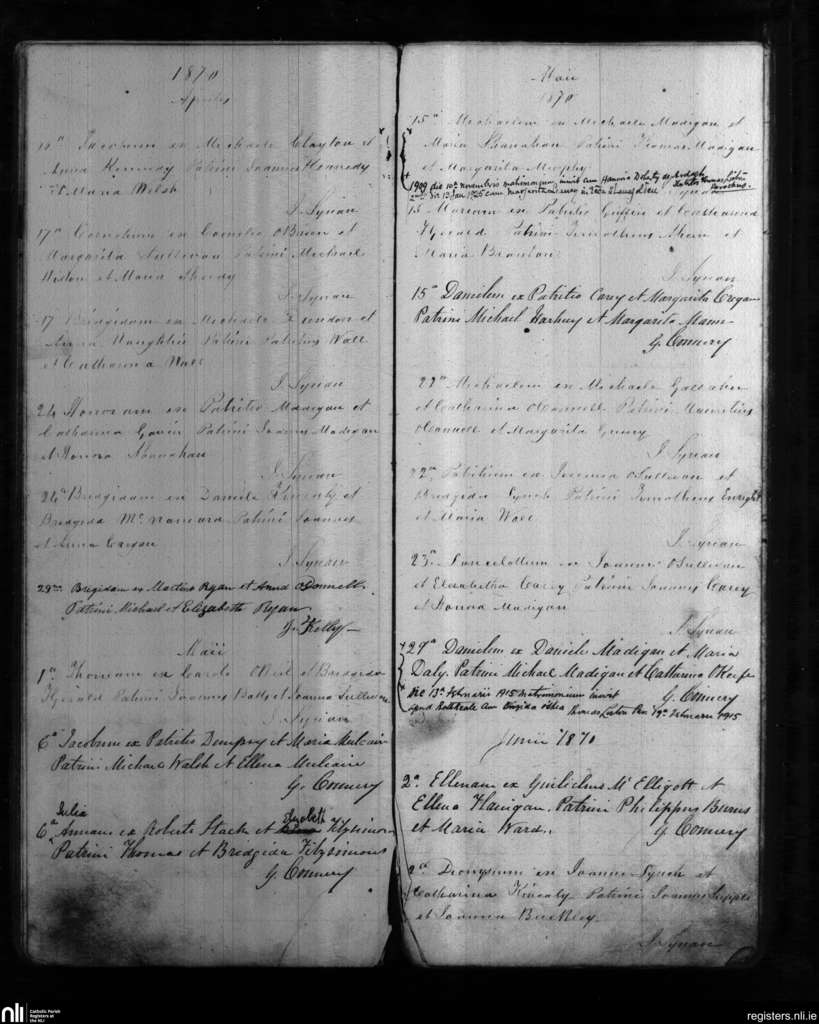 1870
Aprilis
Jacobum ex Michaele Clayton et
Anna Kennedy Patrini Joannes Kennedy
et Maria Welsh
J. Synan
17a Cornelium ex Cornelio OBrien et
Margarita Sullivan Patrini Michael
et Maria Sheedy
J. Synan
17 Bridgidam ex Michaele et
Anna Naughtin Patrini Patritius Wall
et Catharina Wall
J. Synan
24 Honoram ex Patritio Madigan et
Catharina Gavin Patrini Joannes Madigan
et Honora Shanahan
J. Synan
24a Bridgidam ex Daniele et
Bridgida McNamara Patrini Joannes
et Anna
J. Synan
Bregidam ex Martino Ryan et Anna ODonnell
Patrini Michael et Elizabeth Ryan
J. Kelly
Maii
1a Thomam ex Carolo ONeil et Bridgida
Fitzgerald Patrini Joannes et Joanna Sullivan
J. Synan
6a Jacobum ex Patritio Dempsy et Maria Mulcair
Patrini Michael Walsh et Ellena Mulcair
G. Connery
Julia
Elizabeth
6a Annam ex Roberto Stack et Fitzsimons
Patrini Thomas et Bredgida Fitzsimons
G. Connery
Maii
1870
15a Michaelem ex Michaele Madigan et
Maria Shanahan Patrini Thomas Madigan
et Margarita Murphy
1909 die 10a Novembris matrimonium inivit cum Honoria Doherty
Parochus
J. Synan
15 Mariam ex Patritio Griffin et Catharina
Patrini Timotheus Ahern et
Maria
J. Synan
15a Danielem ex Patritio Carey et Margarita Cregan
Patrini Michael Hartney et Margarita Mann
G. Connery
22a Michaelem ex Michaele Gallaher
et Catharina OConnell Patrini Mauritius
OConnell et Margarita
J. Synan
22a Patritium ex Jeremia OSullivan et
Bridgida Lynch Patrini Timotheus Enright
et Maria Wall
J. Synan
23a Lancelottum ex Joanne OSullivan
et Elizabetha Carey Patrini Joannes Carey
et Honora Madigan
J. Synan
29a Danielem ex Daniele Madigan et Maria
Daly. Patrini Michael Madigan et Catharina OKeefe
G. Connery
Die 13a Februarii 1915 matrimonium inivit
apud Rathkeale cum Brigida OShea Thomas Liston 19a Februarii 1915
Junii 1870
2a. Ellenam ex Gulielmo McElligott et
Ellena Flanigan. Patrini Philippus Burns
et Maria Ward.
G. Connery
2a Dionysium ex Joanne Lynch et
Catharina Kinealy Patrini Joannes Supple
et Joanna Buckley
J. Synan
nli
Catholic Parish
Registers at
the NLI
registers.nli.ie